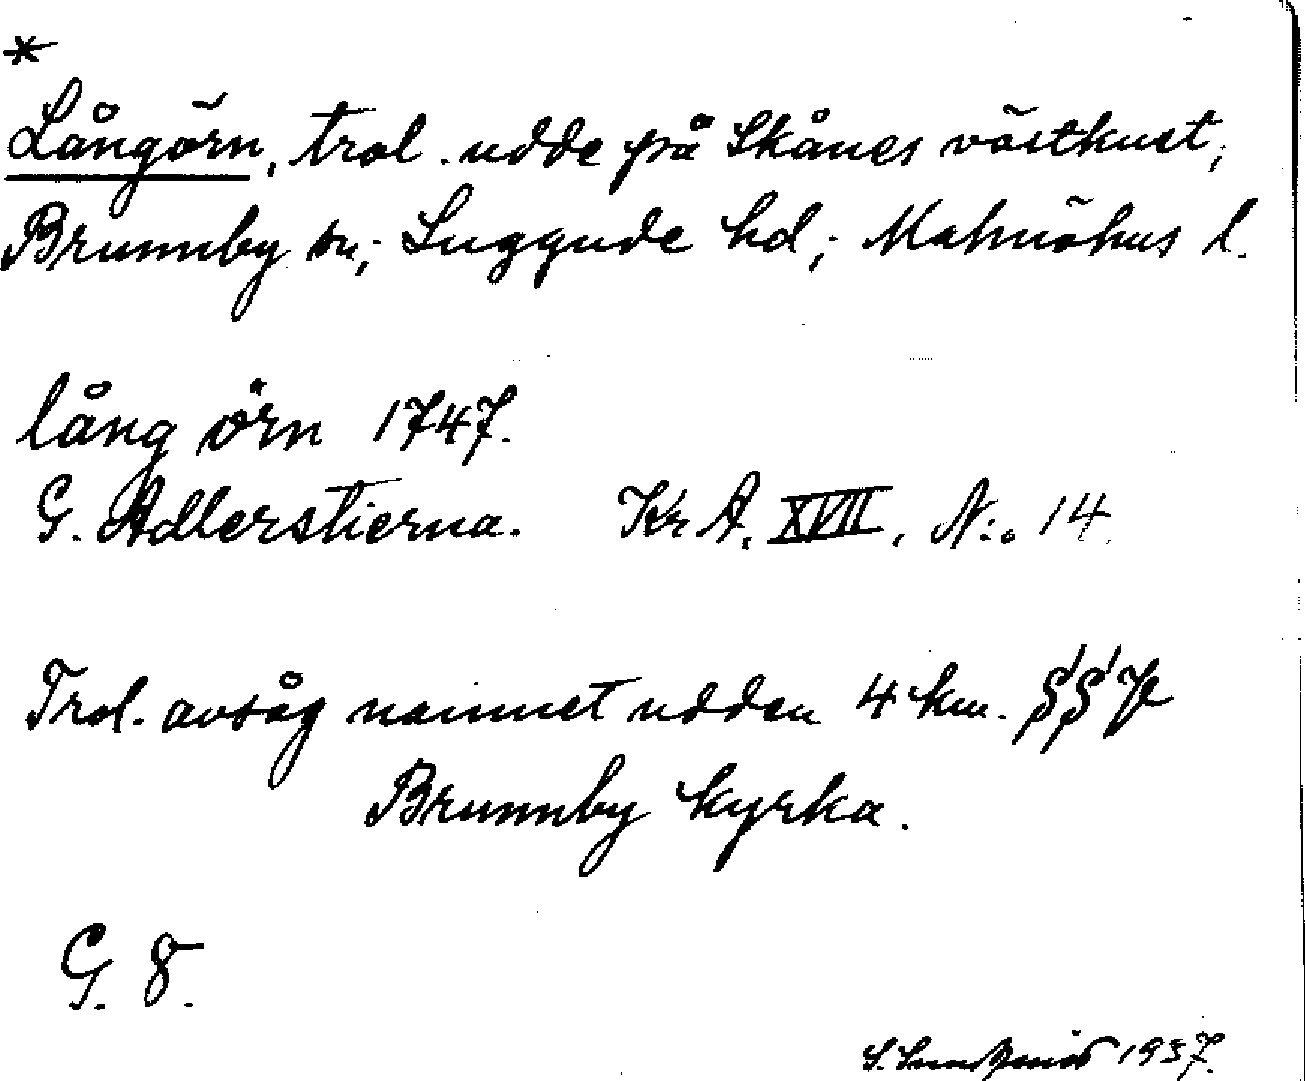 *
Långörn, trol. udde på Skånes västkust,
Brunnby sn; Luggude hd; Malmöhus l.
lång örn 1747.
G. Adlerstierna. Kr A. XVII, N:o 14.
Trol. avsåg namnet udden 4 km.
Brunnby kyrka.
G. 8.
1937.